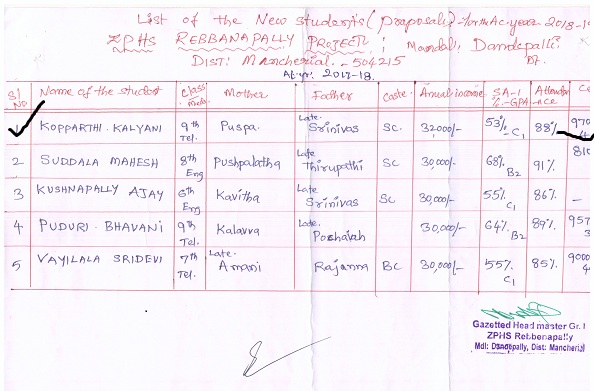 List of the New students (Proposals) - for the Ac. year 2018-19
ZPHS REBBANAPALLY PROJECT; Mandal: Dandepalli
DIST: Mancherial. - 504215
2017-18.
Sl No Name of the student Class Med. Mother Father Caste Anual income SA-1 %-GPA Attendance Ce
KOPPARTHI. KALYANI 9th Tel. Puspa. Late Srinivas SC. 32000/- 53% C1 88% 970
2 SUDDALA MAHESH 8th Eng Pushpalatha Late Thirupathi SC 30,000/- 68% B2 91% 810
3 KUSHNAPALLY AJAY 6th Eng Kavitha Late Srinivas SC 30,000/- 55% C1 86% -
4 PUDURI. BHAVANI 9th Tel. Kalavva Late. Poshavah 30,000/- 64% B2 89% 957
5 VAYILALA SRIDEVI 7th Tel. Late. Amani Rajanna BC 30,000/- 55% C1 85% 9000
Gazetted Head master Gr. I
ZPHS Rebbenapally
Mdl: Dandepally, Dist: Mancherial